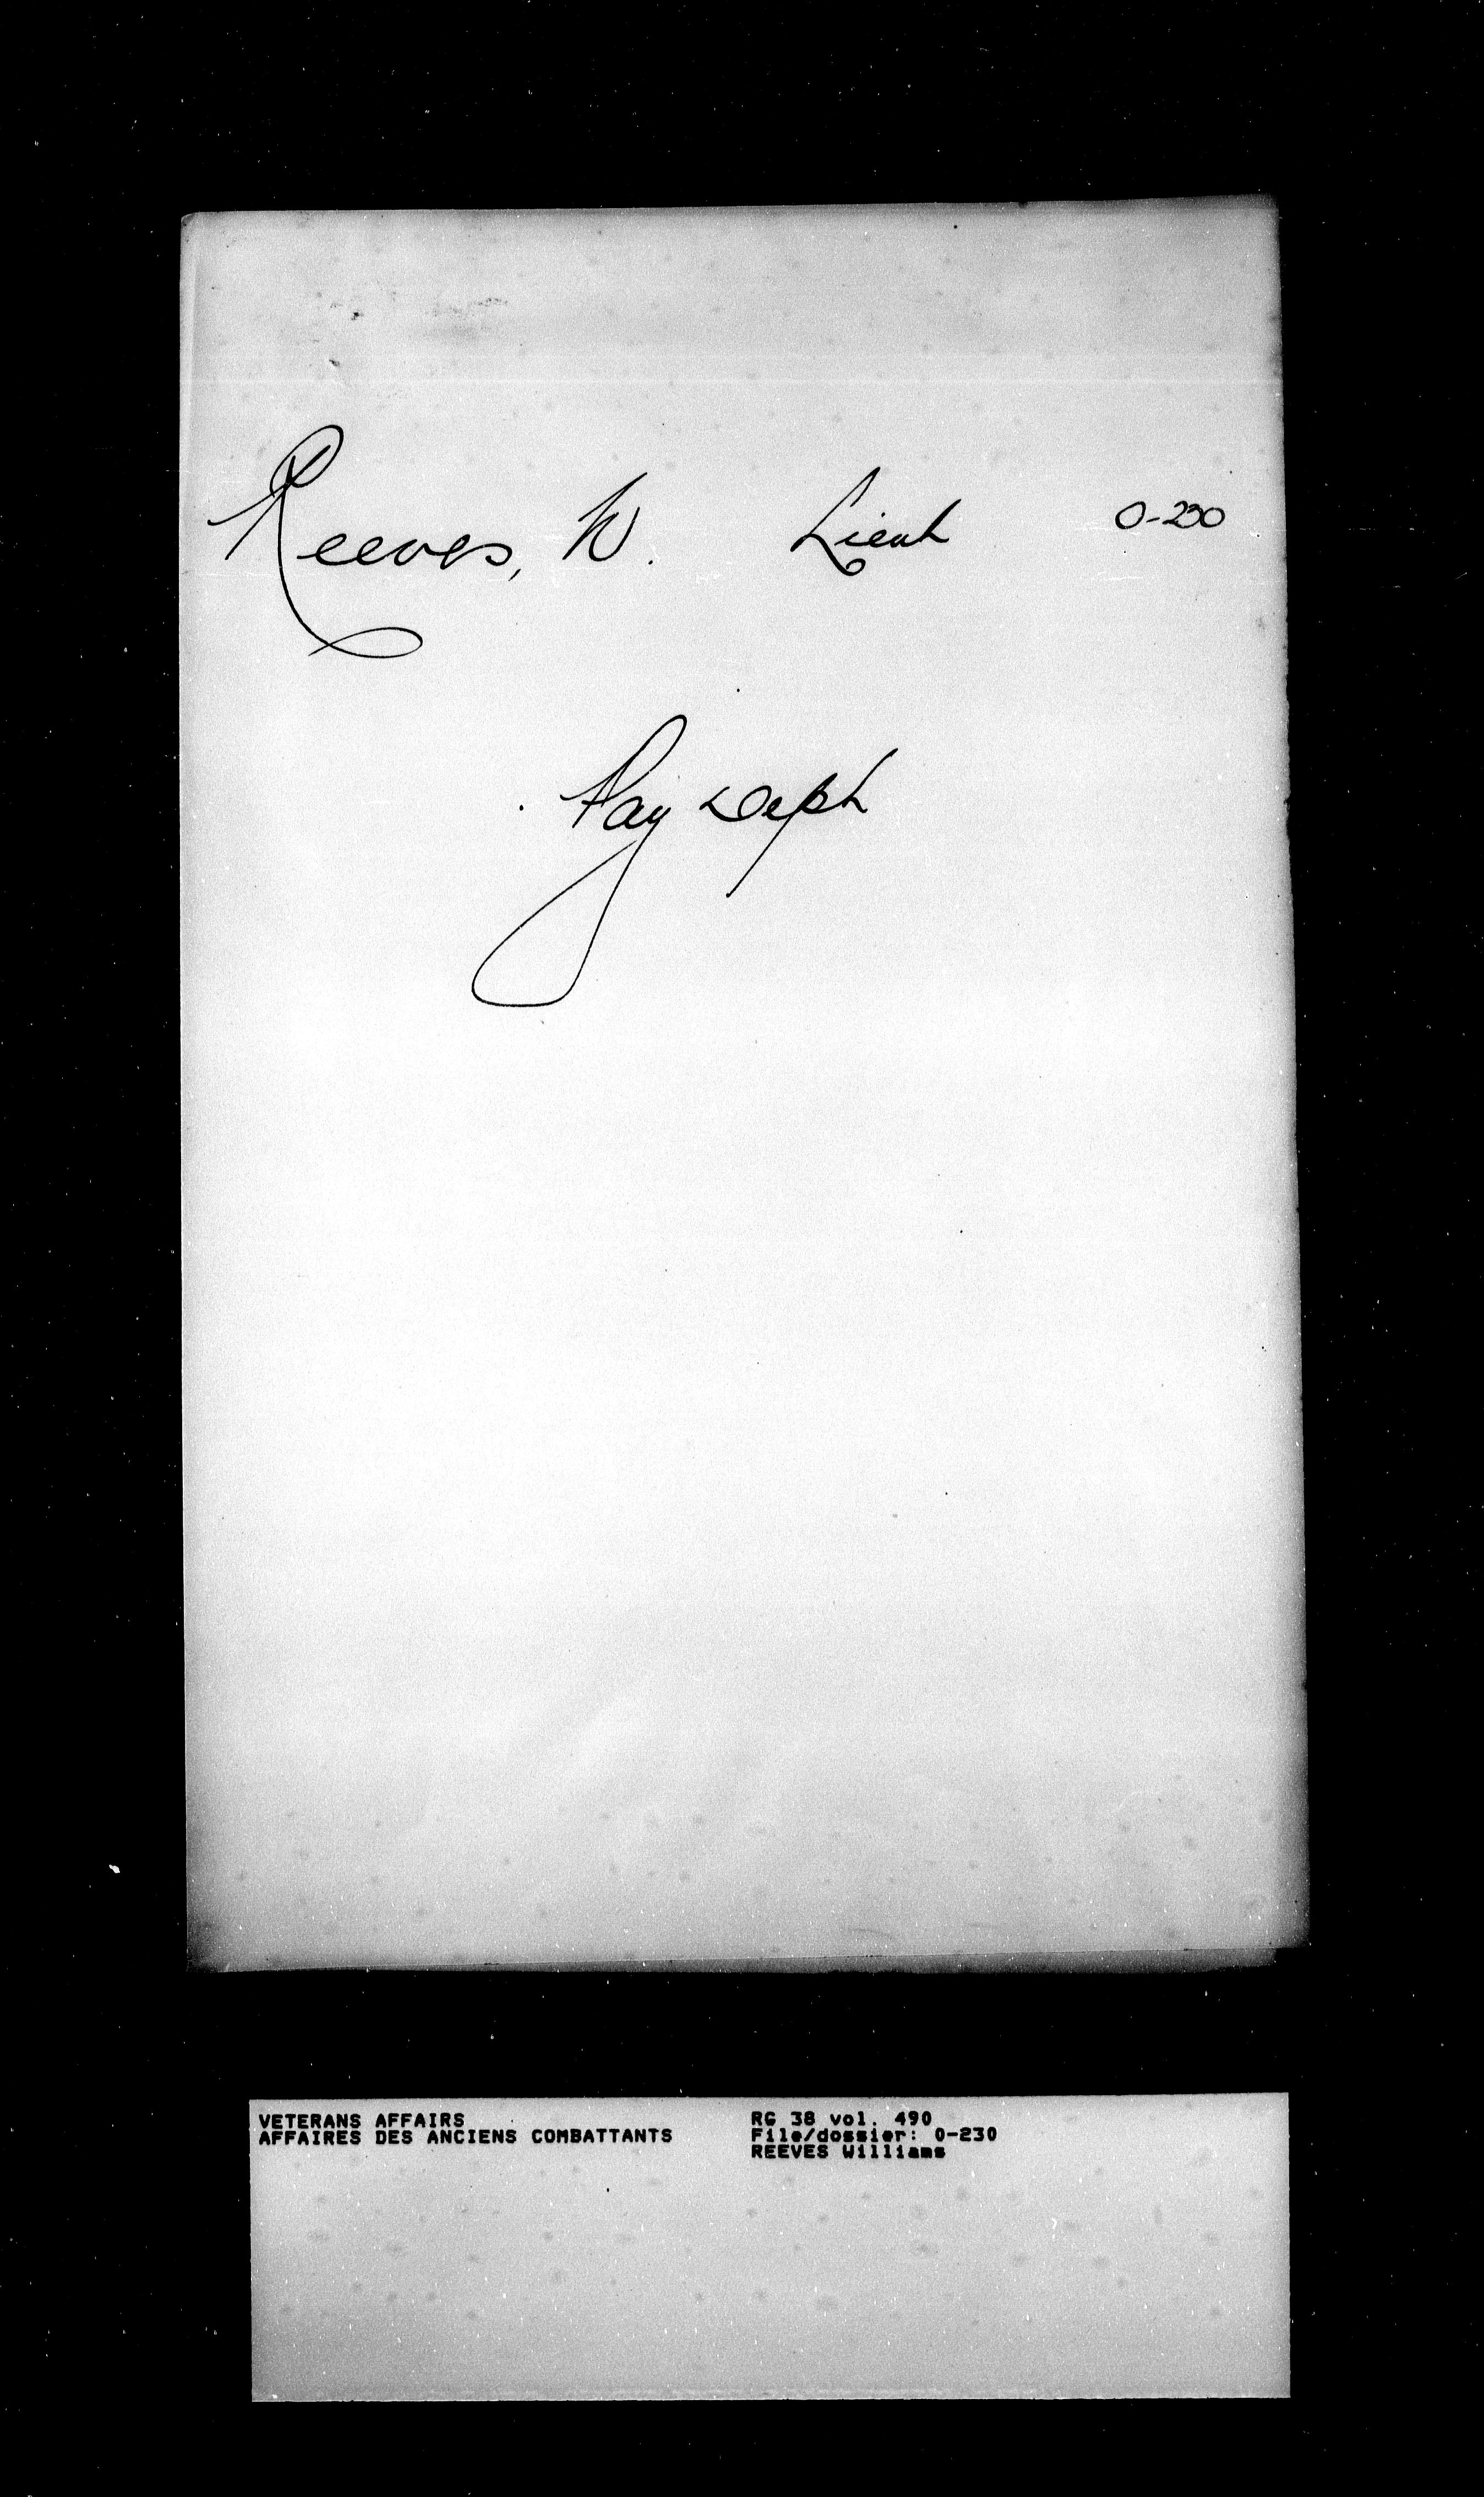 Reeves, W. Lieut 0-230
Pay Dept
VETERANS AFFAIRS RG 38 vol. 490
AFFAIRES DES ANCIENS COMBATTANTS File/dossier: 0-230
REEVES Williams